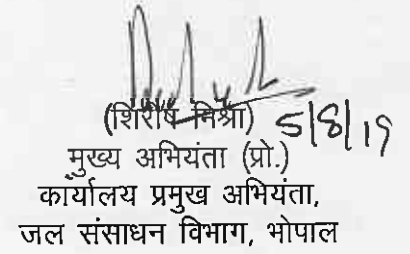 (शिरीष मिश्रा) 5/8/19
मुख्य अभियंता (प्रो.)
कार्यालय प्रमुख अभियंता,
जल संसाधन विभाग, भोपाल